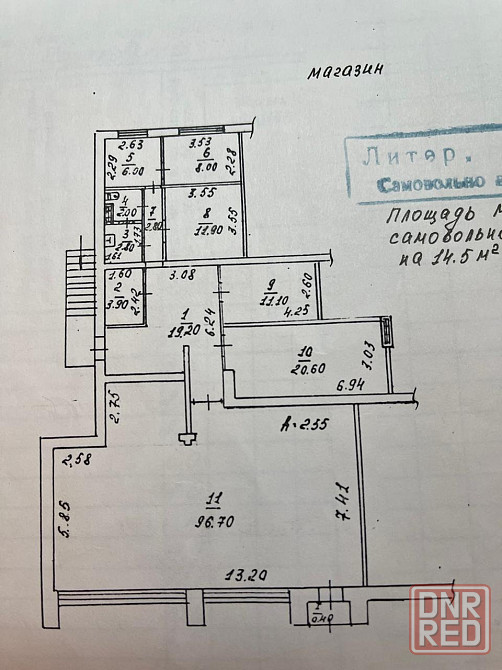 магазин
Литер.
Самовольно в
Площадь м
самовольно
на 14.5 м²
2.63
3.53
2.29
5
6.00
6
8.00
2.28
3.55
4
2.00
7
2.80
8
11.90
3.55
3
1.73
1.61
1.60
3.08
2
3.90
2.42
1
19.20
6.24
9
11.10
2.60
4.25
10
20.60
3.03
6.94
2.75
h=2.55
2.58
5.85
11
96.70
7.41
13.20
I
0.40
DNR
RED